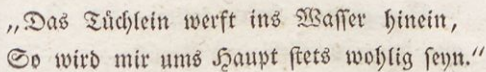 „Das Tüchlein werft ins Waſſer hinein,
So wird mir ums Haupt ſtets wohlig ſeyn.“